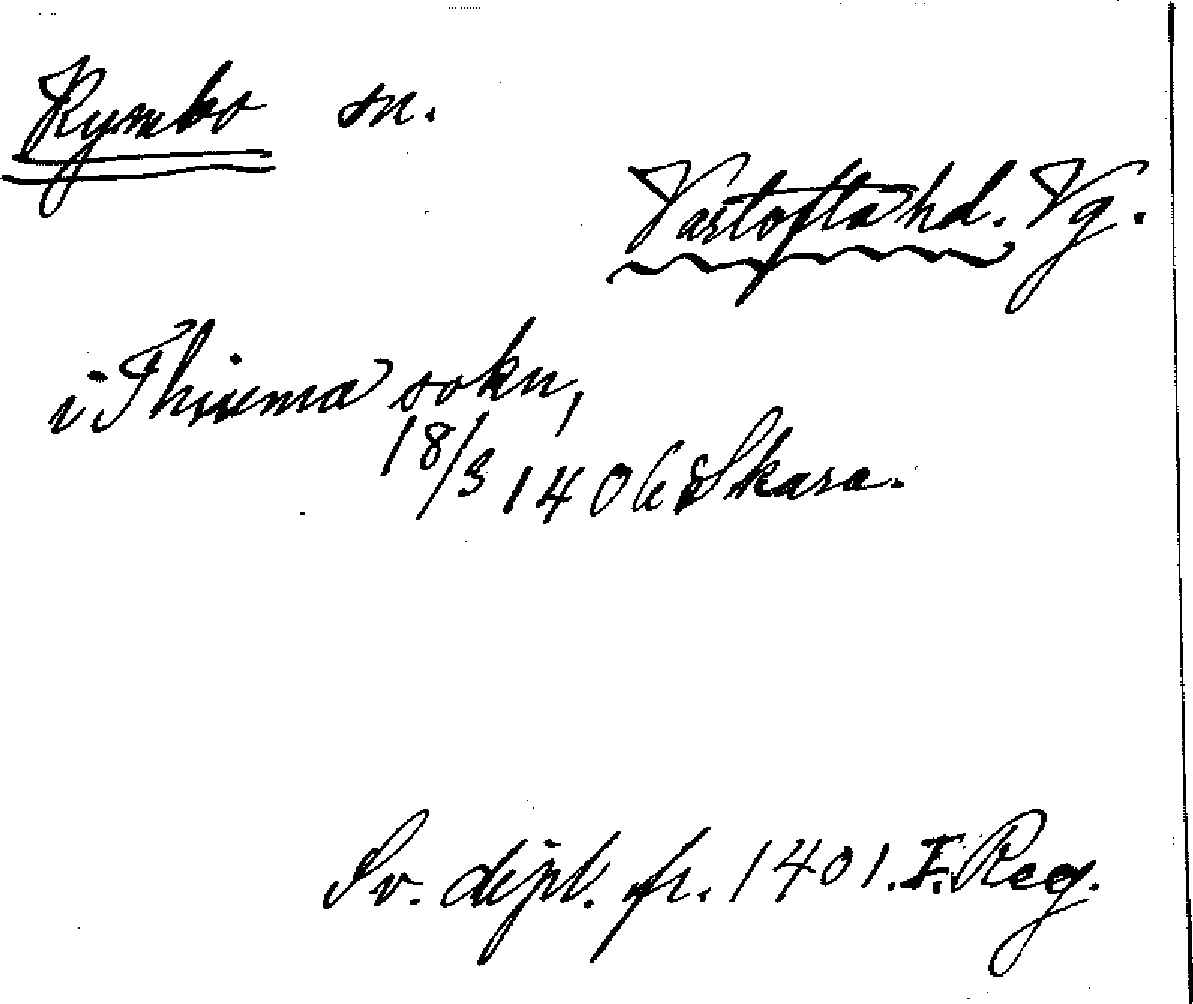 Kymbo sn.
Vartofta hd. Vg.
i Thiuma sokn,
18/3 1406 Skara.
Sv. dipl. fr. 1401. I. Reg.